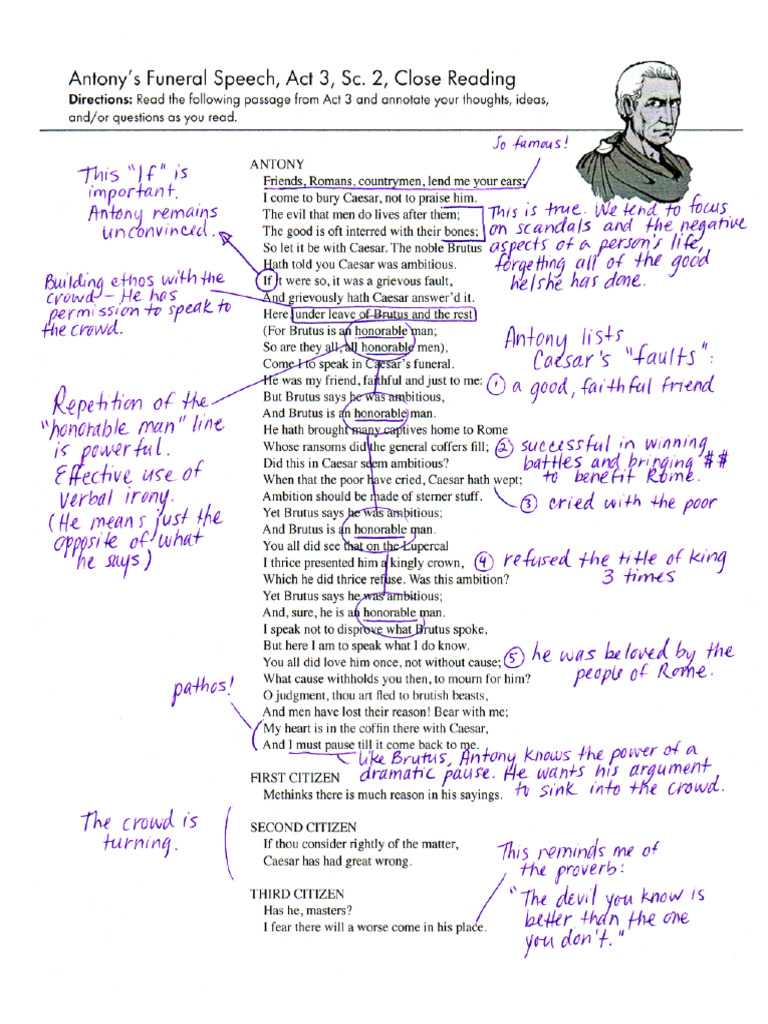 Antony's Funeral Speech, Act 3, Sc. 2, Close Reading
Directions: Read the following passage from Act 3 and annotate your thoughts, ideas,
and/or questions as you read.
This "If" is
important.
Antony remains
unconvinced.
Building ethos with the
crowd – He has
permission to speak to
the crowd.
Repetition of the
"honorable man" line
is powerful.
Effective use of
verbal irony.
(He means just the
opposite of what
he says)
pathos!
The crowd is
turning.
ANTONY
Friends, Romans, countrymen, lend me your ears;
I come to bury Caesar, not to praise him.
The evil that men do lives after them;
The good is oft interred with their bones;
So let it be with Caesar. The noble Brutus
Hath told you Caesar was ambitious.
If it were so, it was a grievous fault,
And grievously hath Caesar answer'd it.
Here, under leave of Brutus and the rest
(For Brutus is an honorable man;
So are they all, all honorable men),
Come I to speak in Caesar's funeral.
He was my friend, faithful and just to me:
But Brutus says he was ambitious,
And Brutus is an honorable man.
He hath brought many captives home to Rome
Whose ransoms did the general coffers fill;
Did this in Caesar seem ambitious?
When that the poor have cried, Caesar hath wept;
Ambition should be made of sterner stuff.
Yet Brutus says he was ambitious;
And Brutus is an honorable man.
You all did see that on the Lupercal
I thrice presented him a kingly crown,
Which he did thrice refuse. Was this ambition?
Yet Brutus says he was ambitious;
And, sure, he is an honorable man.
I speak not to disprove what Brutus spoke,
But here I am to speak what I do know.
You all did love him once, not without cause;
What cause withholds you then, to mourn for him?
O judgment, thou art fled to brutish beasts,
And men have lost their reason! Bear with me;
My heart is in the coffin there with Caesar,
And I must pause till it come back to me.
FIRST CITIZEN
Methinks there is much reason in his sayings.
SECOND CITIZEN
If thou consider rightly of the matter,
Caesar has had great wrong.
THIRD CITIZEN
Has he, masters?
I fear there will a worse come in his place.
So famous!
This is true. We tend to focus
on scandals and the negative
aspects of a person's life,
forgetting all of the good
he/she has done.
Antony lists
Caesar's "faults":
1 a good, faithful friend
2 successful in winning
battles and bringing $$
to benefit Rome.
3 cried with the poor
4 refused the title of king
3 times
5 he was beloved by the
people of Rome.
like Brutus, Antony knows the power of a
dramatic pause. He wants his argument
to sink into the crowd.
This reminds me of
the proverb:
"The devil you know is
better than the one
you don't."